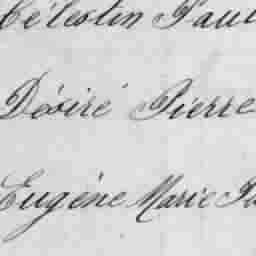 Célestin Paul
Désiré Pierre
Eugène Marie